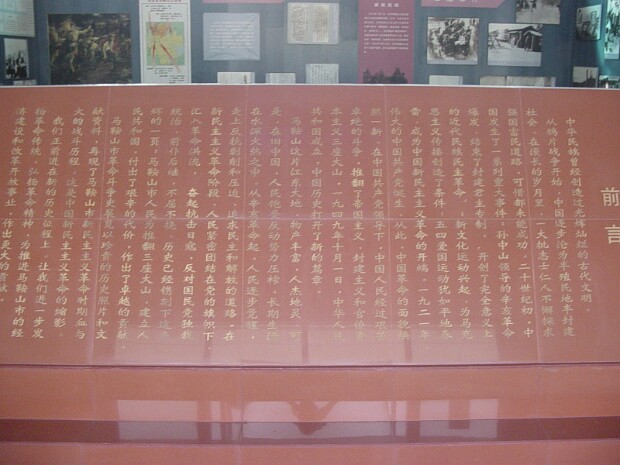 前言
中华民族曾经创造过光辉灿烂的古代文明。
从鸦片战争开始，中国逐步沦为半殖民地半封建
社会。在漫长的岁月里，一大批志士仁人不懈探求
强国富民道路，可惜都未能成功。二十世纪初，中
国发生了一系列重大事件：孙中山领导的辛亥革命
爆发，结束了封建君主专制，开创了完全意义上
的近代民族民主革命。新文化运动兴起，为马克
思主义传播创造了条件；五四爱国运动犹如平地春
雷，成为中国新民主主义革命的开端。一九二一年
伟大的中国共产党诞生，从此，中国革命的面貌焕
然一新。在中国共产党领导下，中国人民经过艰苦
卓绝的斗争，推翻了帝国主义、封建主义和官僚资
本主义三座大山。一九四九年十月一日，中华人民
共和国成立，中国历史打开了新的篇章。
马鞍山位于江东大地，物产丰富，人杰地灵。可
是，在旧中国，人民饱受反动势力压榨，长期生活
在水深火热之中。从辛亥革命起，人民逐步觉醒，
走上反抗剥削和压迫，追求民主和解放的道路。在
新民主主义革命阶段，人民紧密团结在党的旗帜下
汇入革命洪流，奋起抗击日寇，反对国民党独裁
统治，前仆后继，不屈不挠，历史已经刻下这光
辉的一页。马鞍山市人民为推翻三座大山，建立人
民共和国，付出了艰辛的代价，作出了卓越的贡献。
马鞍山市革命斗争史展览以珍贵的历史照片和文
献资料，再现了马鞍山市新民主主义革命时期血与
火的战斗历程，这是中国新民主主义革命的缩影。
我们正前进在新的历史征程上，让我们进一步发
扬革命传统，弘扬革命精神，为推进马鞍山市的经
济建设和改革开放事业，作出更大的贡献。